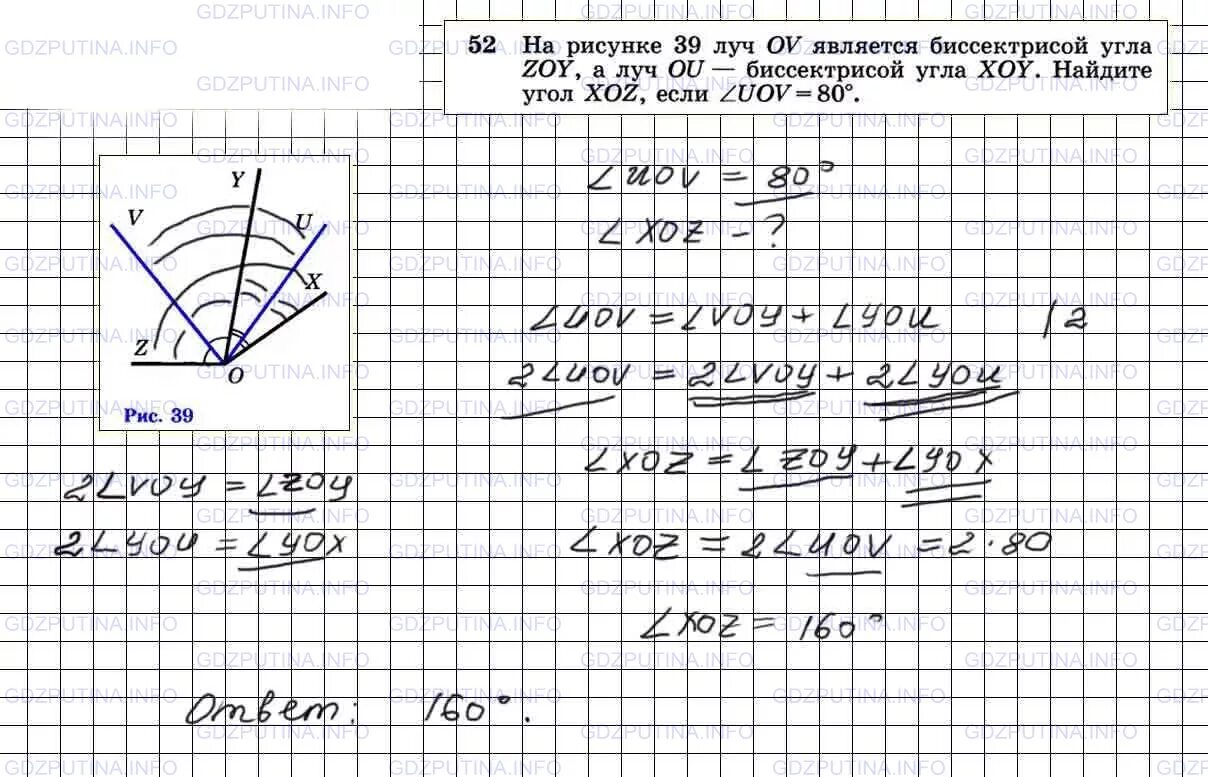 52 На рисунке 39 луч OV является биссектрисой угла
ZOY, а луч OU — биссектрисой угла XOY. Найдите
угол XOZ, если ∠UOV = 80°.
Y
V
U
X
Z
O
Рис. 39
∠UOV = 80°
∠XOZ - ?
∠UOV = ∠VOY + ∠YOU | 2
2∠UOV = 2∠VOY + 2∠YOU
∠XOZ = ∠ZOY + ∠YOX
2∠VOY = ∠ZOY
2∠YOU = ∠YOX
∠XOZ = 2∠UOV = 2·80
∠XOZ = 160°
Ответ: 160°.
GDZPUTINA.INFO